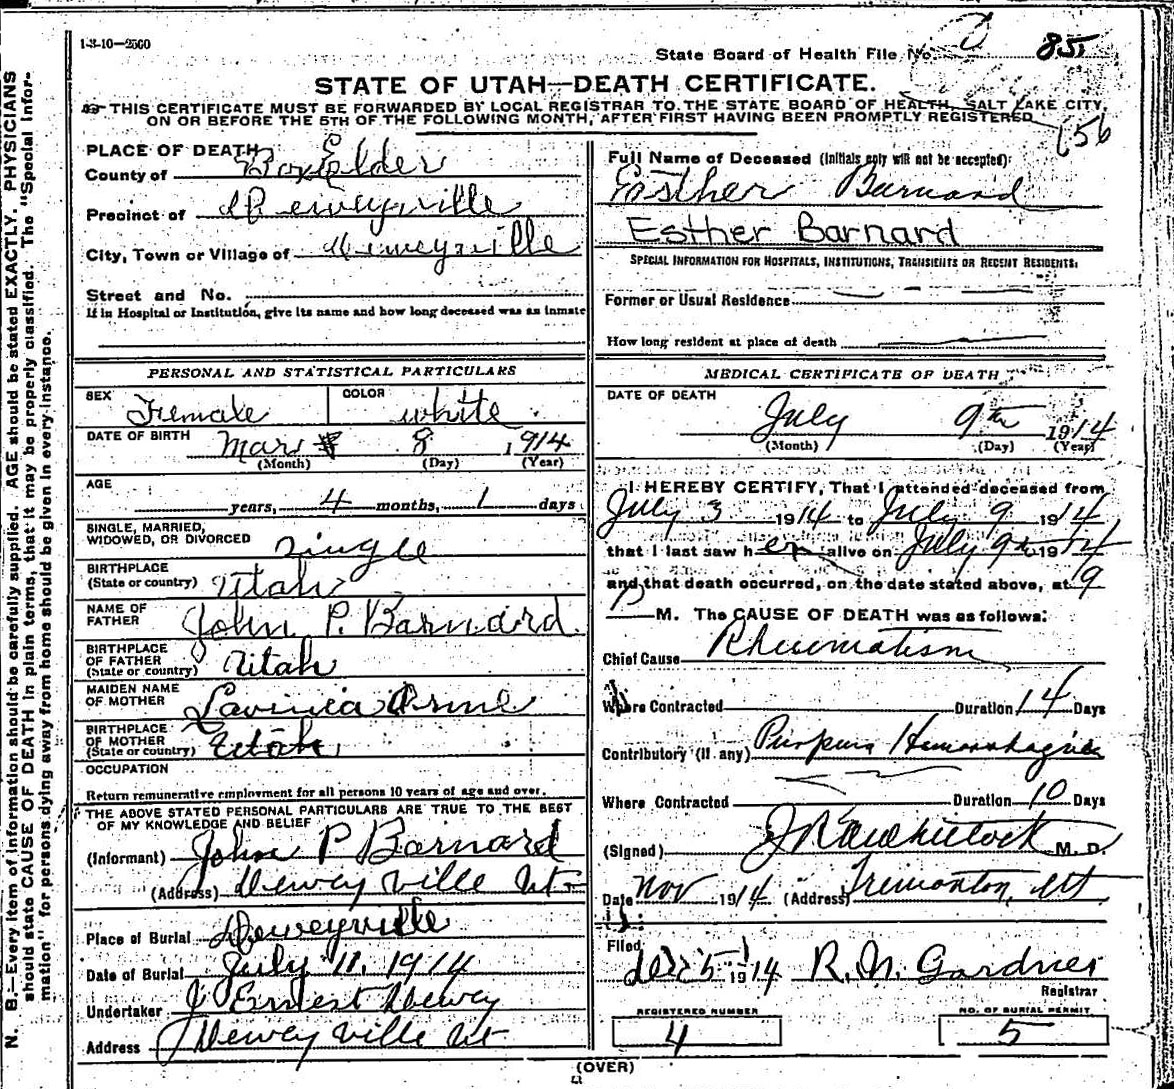 1-3-10—2500
State Board of Health File No. 85
STATE OF UTAH—DEATH CERTIFICATE.
THIS CERTIFICATE MUST BE FORWARDED BY LOCAL REGISTRAR TO THE STATE BOARD OF HEALTH, SALT LAKE CITY,
ON OR BEFORE THE 5TH OF THE FOLLOWING MONTH, AFTER FIRST HAVING BEEN PROMPTLY REGISTERED
156
PLACE OF DEATH
County of Box Elder
Precinct of Deweyville
City, Town or Village of Deweyville
Street and No.
If in Hospital or Institution, give its name and how long deceased was an inmate
PERSONAL AND STATISTICAL PARTICULARS
SEX Female COLOR white
DATE OF BIRTH Mar 8 1914
(Month) (Day) (Year)
AGE
years, 4 months, 1 days
SINGLE, MARRIED,
WIDOWED, OR DIVORCED Single
BIRTHPLACE
(State or country) Utah
NAME OF
FATHER John P. Barnard
BIRTHPLACE
OF FATHER
(State or country) Utah
MAIDEN NAME
OF MOTHER Lavinica Orme
BIRTHPLACE
OF MOTHER
(State or country) Utah
OCCUPATION
Return remunerative employment for all persons 10 years of age and over.
THE ABOVE STATED PERSONAL PARTICULARS ARE TRUE TO THE BEST
OF MY KNOWLEDGE AND BELIEF
(Informant) John P Barnard
(Address) Deweyville Ut
Place of Burial Deweyville
Date of Burial July 11, 1914
Undertaker J Ernest Dewey
Address Deweyville Ut
Full Name of Deceased (Initials only will not be accepted):
Esther Barnard
Esther Barnard
SPECIAL INFORMATION FOR HOSPITALS, INSTITUTIONS, TRANSIENTS OR RECENT RESIDENTS.
Former or Usual Residence
How long resident at place of death
MEDICAL CERTIFICATE OF DEATH
DATE OF DEATH
July 9th 1914
(Month) (Day) (Year)
I HEREBY CERTIFY, That I attended deceased from
July 3 1914 to July 9 1914
that I last saw her alive on July 9th 1914
and that death occurred, on the date stated above, at 9
P M. The CAUSE OF DEATH was as follows:
Chief Cause Rheumatism
Where Contracted Duration 14 Days
Contributory (if any) Purpura Hemorrhagica
Where Contracted Duration 10 Days
(Signed) M. D.
Date Nov 1914 (Address) Tremonton, Ut
Filed
Dec 5 1914 R. N. Gardner
Registrar
REGISTERED NUMBER
4
NO. OF BURIAL PERMIT
5
(OVER)
N. B.—Every item of information should be carefully supplied. AGE should be stated EXACTLY. PHYSICIANS
should state CAUSE OF DEATH in plain terms, that it may be properly classified. The "Special Infor-
mation" for persons dying away from home should be given in every instance.